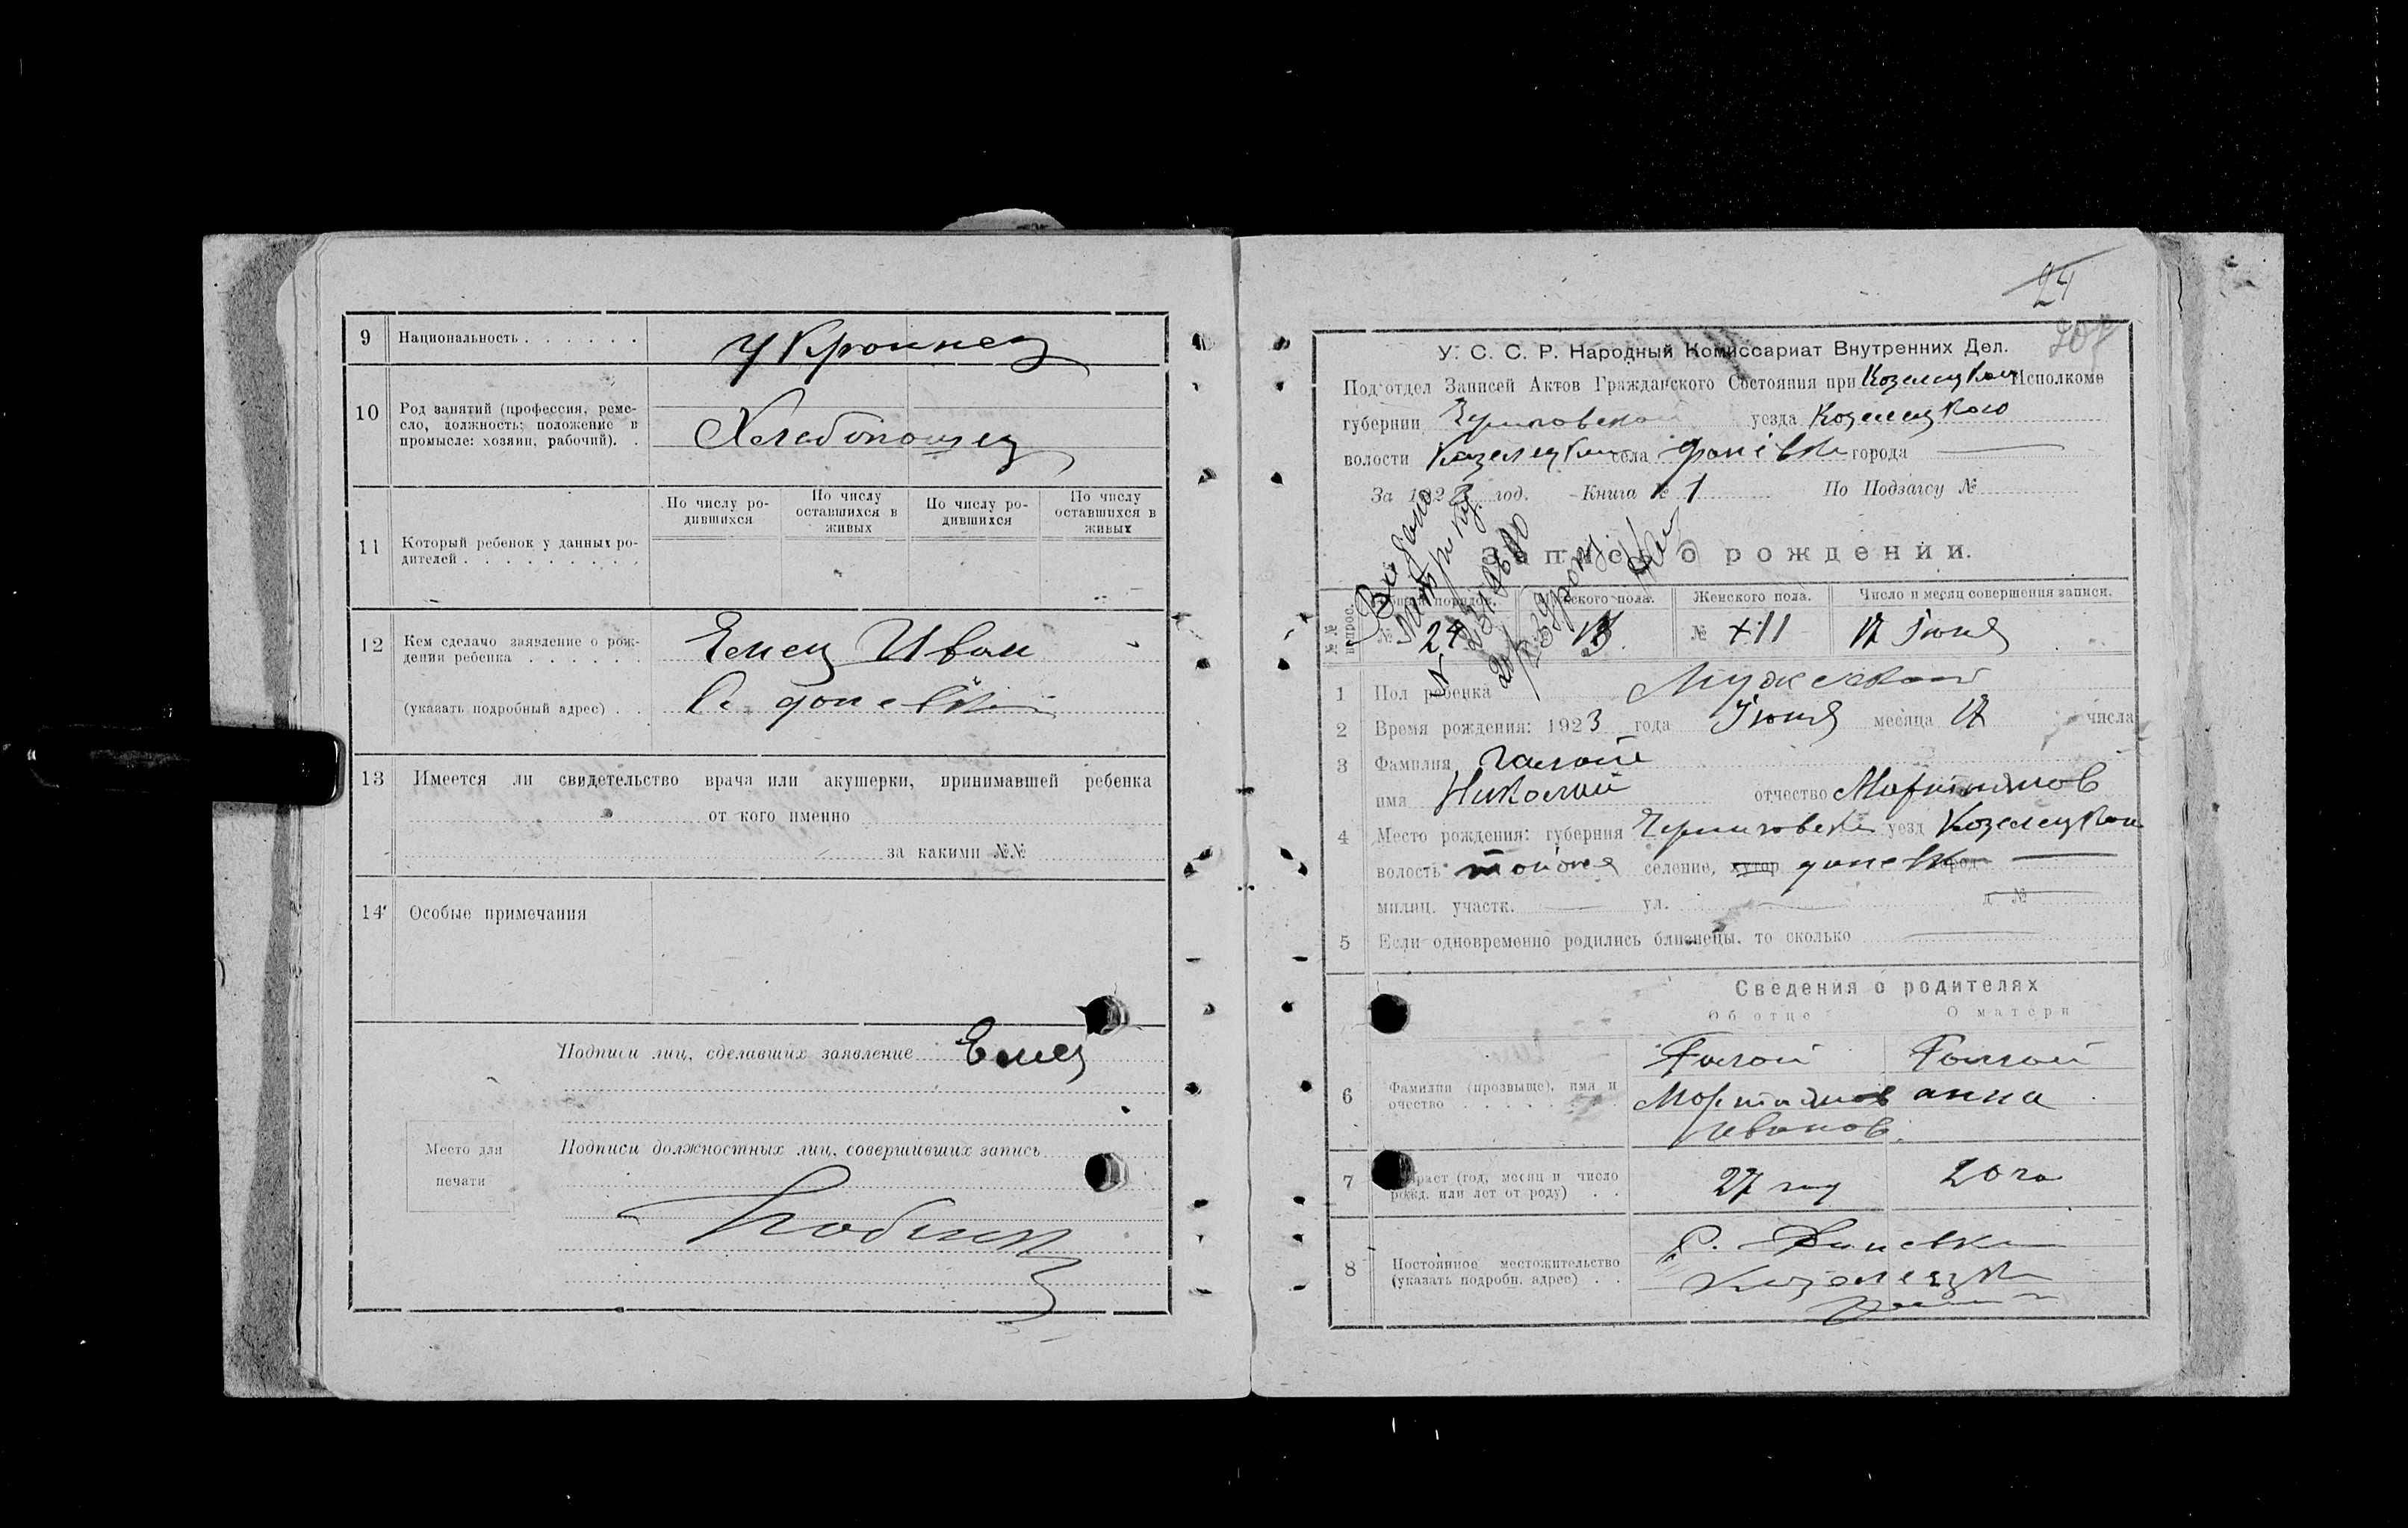 9 Национальность . . . . . . Украинец
10 Род занятий (профессия, реме-
сло, должность; положение в
промысле: хозяин, рабочий). .
Хлебопашец
11 Который ребенок у данных ро-
дителей . . . . . . . . .
По числу ро-
дившихся
По числу
оставшихся в
живых
По числу ро-
дившихся
По числу
оставшихся в
живых
12 Кем сделано заявление о рож-
дении ребенка . . . . . . Емец Иван
(указать подробный адрес) . .
13 Имеется ли свидетельство врача или акушерки, принимавшей ребенка
от кого именно
за какими №№
14 Особые примечания
Подписи лиц, сделавших заявление Емец
Место для
печати
Подписи должностных лиц, совершивших запись
24
У. С. С. Р. Народный Комиссариат Внутренних Дел.
Под'отдел Записей Актов Гражданского Состояния при Козелецком Исполкоме
губернии Черниговской уезда Козелецкого
волости Козелецкой села Данёвки города
За 1923 год. Книга № 1 По Подзагсу №
Запись о рождении.
Выдана
№№ вопрос.
Общий порядок. Мужского пола. Женского пола. Число и месяц совершения записи.
№ 24 13 № 11 17 Июня
1 Пол ребенка Мужской
2 Время рождения: 1923 года Июня месяца 17 числа
3 Фамилия Галай
имя Николай отчество Мартынов
4 Место рождения: губерния Черниговск уезд Козелецкий
волость тойже селение, хутор Даневка город
милиц. участк. ул. д №
5 Если одновременно родились близнецы, то сколько
Сведения о родителях
Об отце О матери
6 Фамилия (прозвыще), имя и
очество . . . . . . . .
Галай Галай
Мартын Анна
Иванов.
7 Возраст (год, месяц и число
рожд. или лет от роду) . .
27 год 20 го
8 Постоянное местожительство
(указать подробн. адрес) . .
С. Даневка
Козелецк